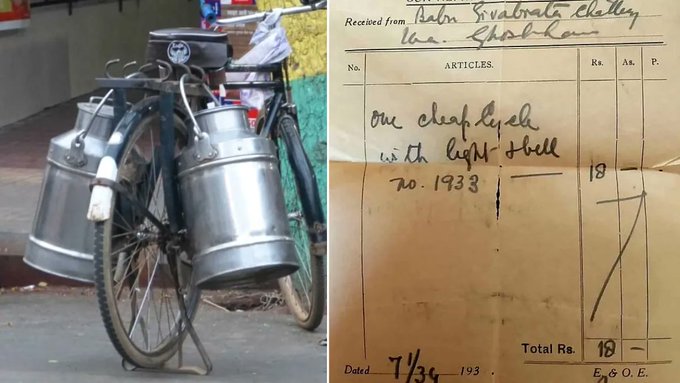 Received from Babu Sivabrata
No. ARTICLES. Rs. As. P.
One cheap Cycle
with light & bell
no. 1933 — 18
Total Rs. 18 —
Dated 7/1/34 193 .
E. & O. E.